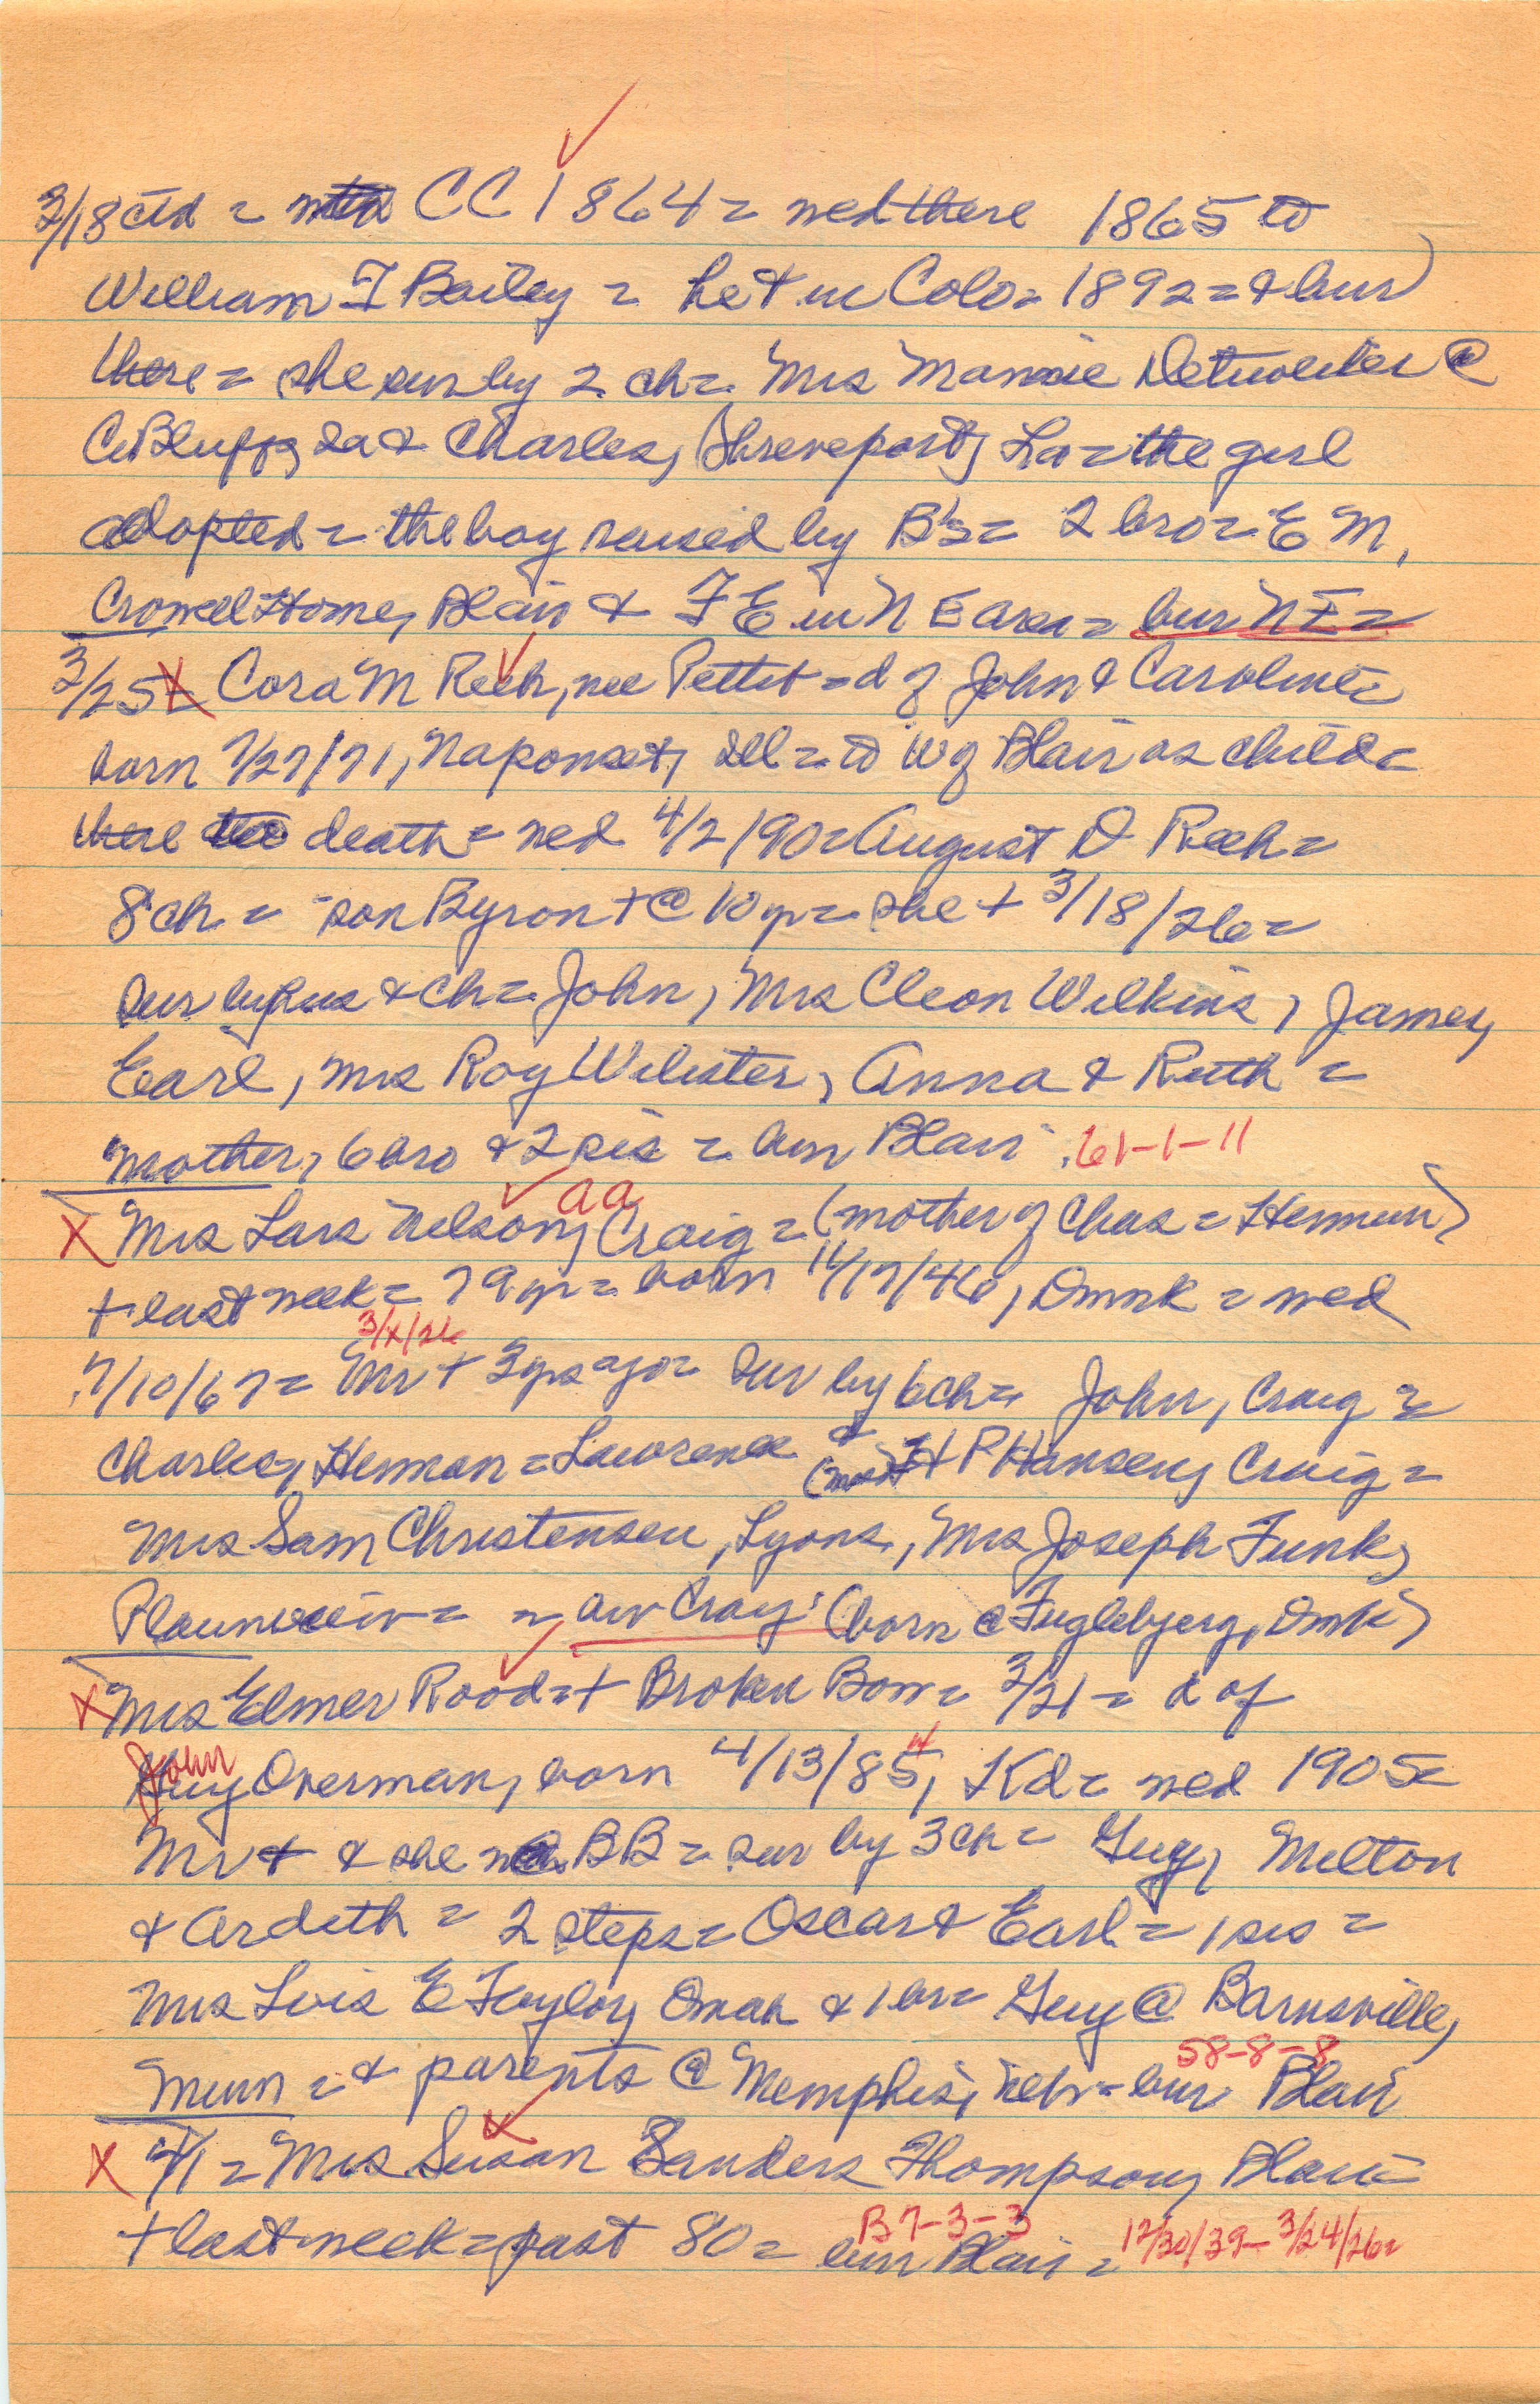 3/18 ctd = CC 1864 = wed there 1865 to
William F Bailey = he + in Colo = 1892 = & bur
there = she sur by 2 ch = Mrs Mamie Detweiler @
C Bluffs, Ia & Charles, Shreveport, La = the girl
adopted = the boy raised by B's = 2 bro = E M,
Crowell Home, Blair & F E in N E area = bur N E =
3/25 = X Cora M Reeh, nee Pettit = d of John & Caroline =
born 7/27/71, Naponset, Ill = to W of Blair as child =
there to death = wed 4/2/90 = August D Reeh =
8 ch = son Byron + @ 10 yr = she + 3/18/26 =
sur by hus & ch = John, Mrs Cleon Wilkins, James,
Earl, Mrs Roy Webster, Anna & Ruth =
mother, 6 bro & 2 sis = bur Blair 61-1-11
aa
X Mrs Lars Nelson, Craig = (mother of Chas = Herman)
+ last week = 79 yr = born /17/46, Dmnk = wed
3/x/26
7/10/67 = Mr + 3 yrs ago = sur by 6 ch = John, Craig =
Charles, Herman = Lawrence & (Mrs) H P Hansen, Craig =
Mrs Sam Christensen, Lyons, Mrs Joseph Funk,
Plainview = = bur Craig: (born @ Fuglebjerg, Dmk)
X Mrs Elmer Rood = + Broken Bow = 3/21 = d of
John
Guy Overman, born 4/13/85, Kd = wed 1905 =
Mr + & she BB = sur by 3 ch = Guy, Milton
& Ardeth = 2 steps = Oscar & Earl = 1 sis =
Mrs Lois E Taylor, Omah & 1 br = Guy @ Barnsville,
58-8-8
Minn = & parents @ Memphis, Nebr = bur Blair
X 4/1 = Mrs Susan Sanders Thompson, Blair =
B7-3-3
+ last week = past 80 = bur Blair = 12/30/39 - 3/24/26 =